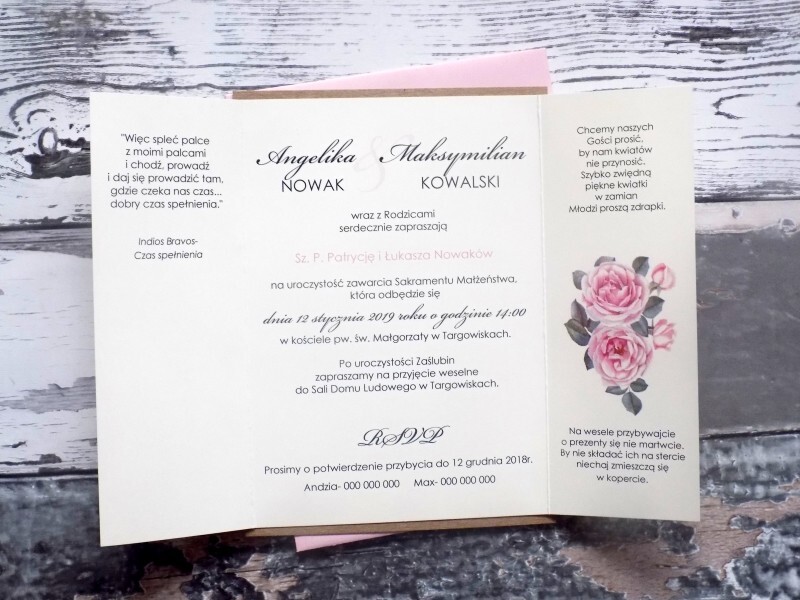 "Więc spleć palce
z moimi palcami
i chodź, prowadź
i daj się prowadzić tam,
gdzie czeka nas czas...
dobry czas spełnienia."
Indios Bravos-
Czas spełnienia
Angelika & Maksymilian
NOWAK KOWALSKI
wraz z Rodzicami
serdecznie zapraszają
Sz. P. Patrycję i Łukasza Nowaków
na uroczystość zawarcia Sakramentu Małżeństwa,
która odbędzie się
dnia 12 stycznia 2019 roku o godzinie 14:00
w kościele pw. św. Małgorzaty w Targowiskach.
Po uroczystości Zaślubin
zapraszamy na przyjęcie weselne
do Sali Domu Ludowego w Targowiskach.
RSVP
Prosimy o potwierdzenie przybycia do 12 grudnia 2018r.
Andzia- 000 000 000 Max- 000 000 000
Chcemy naszych
Gości prosić,
by nam kwiatów
nie przynosić.
Szybko zwiędną
piękne kwiatki
w zamian
Młodzi proszą zdrapki.
Na wesele przybywajcie
o prezenty się nie martwcie.
By nie składać ich na stercie
niechaj zmieszczą się
w kopercie.